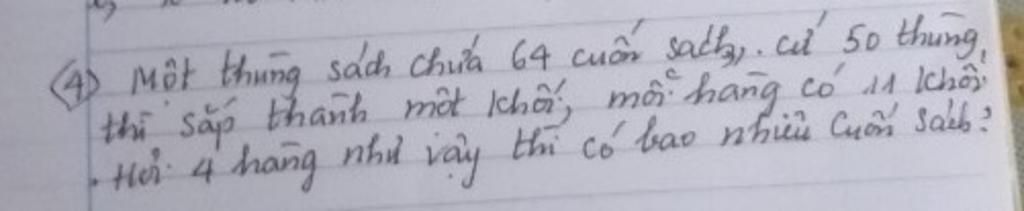 ④ Một thùng sách chứa 64 cuốn sách. cứ 50 thùng,
thì sắp thành một khối, mỗi hàng có 11 khối
. Hỏi 4 hàng như vậy thì có bao nhiêu cuốn sách?